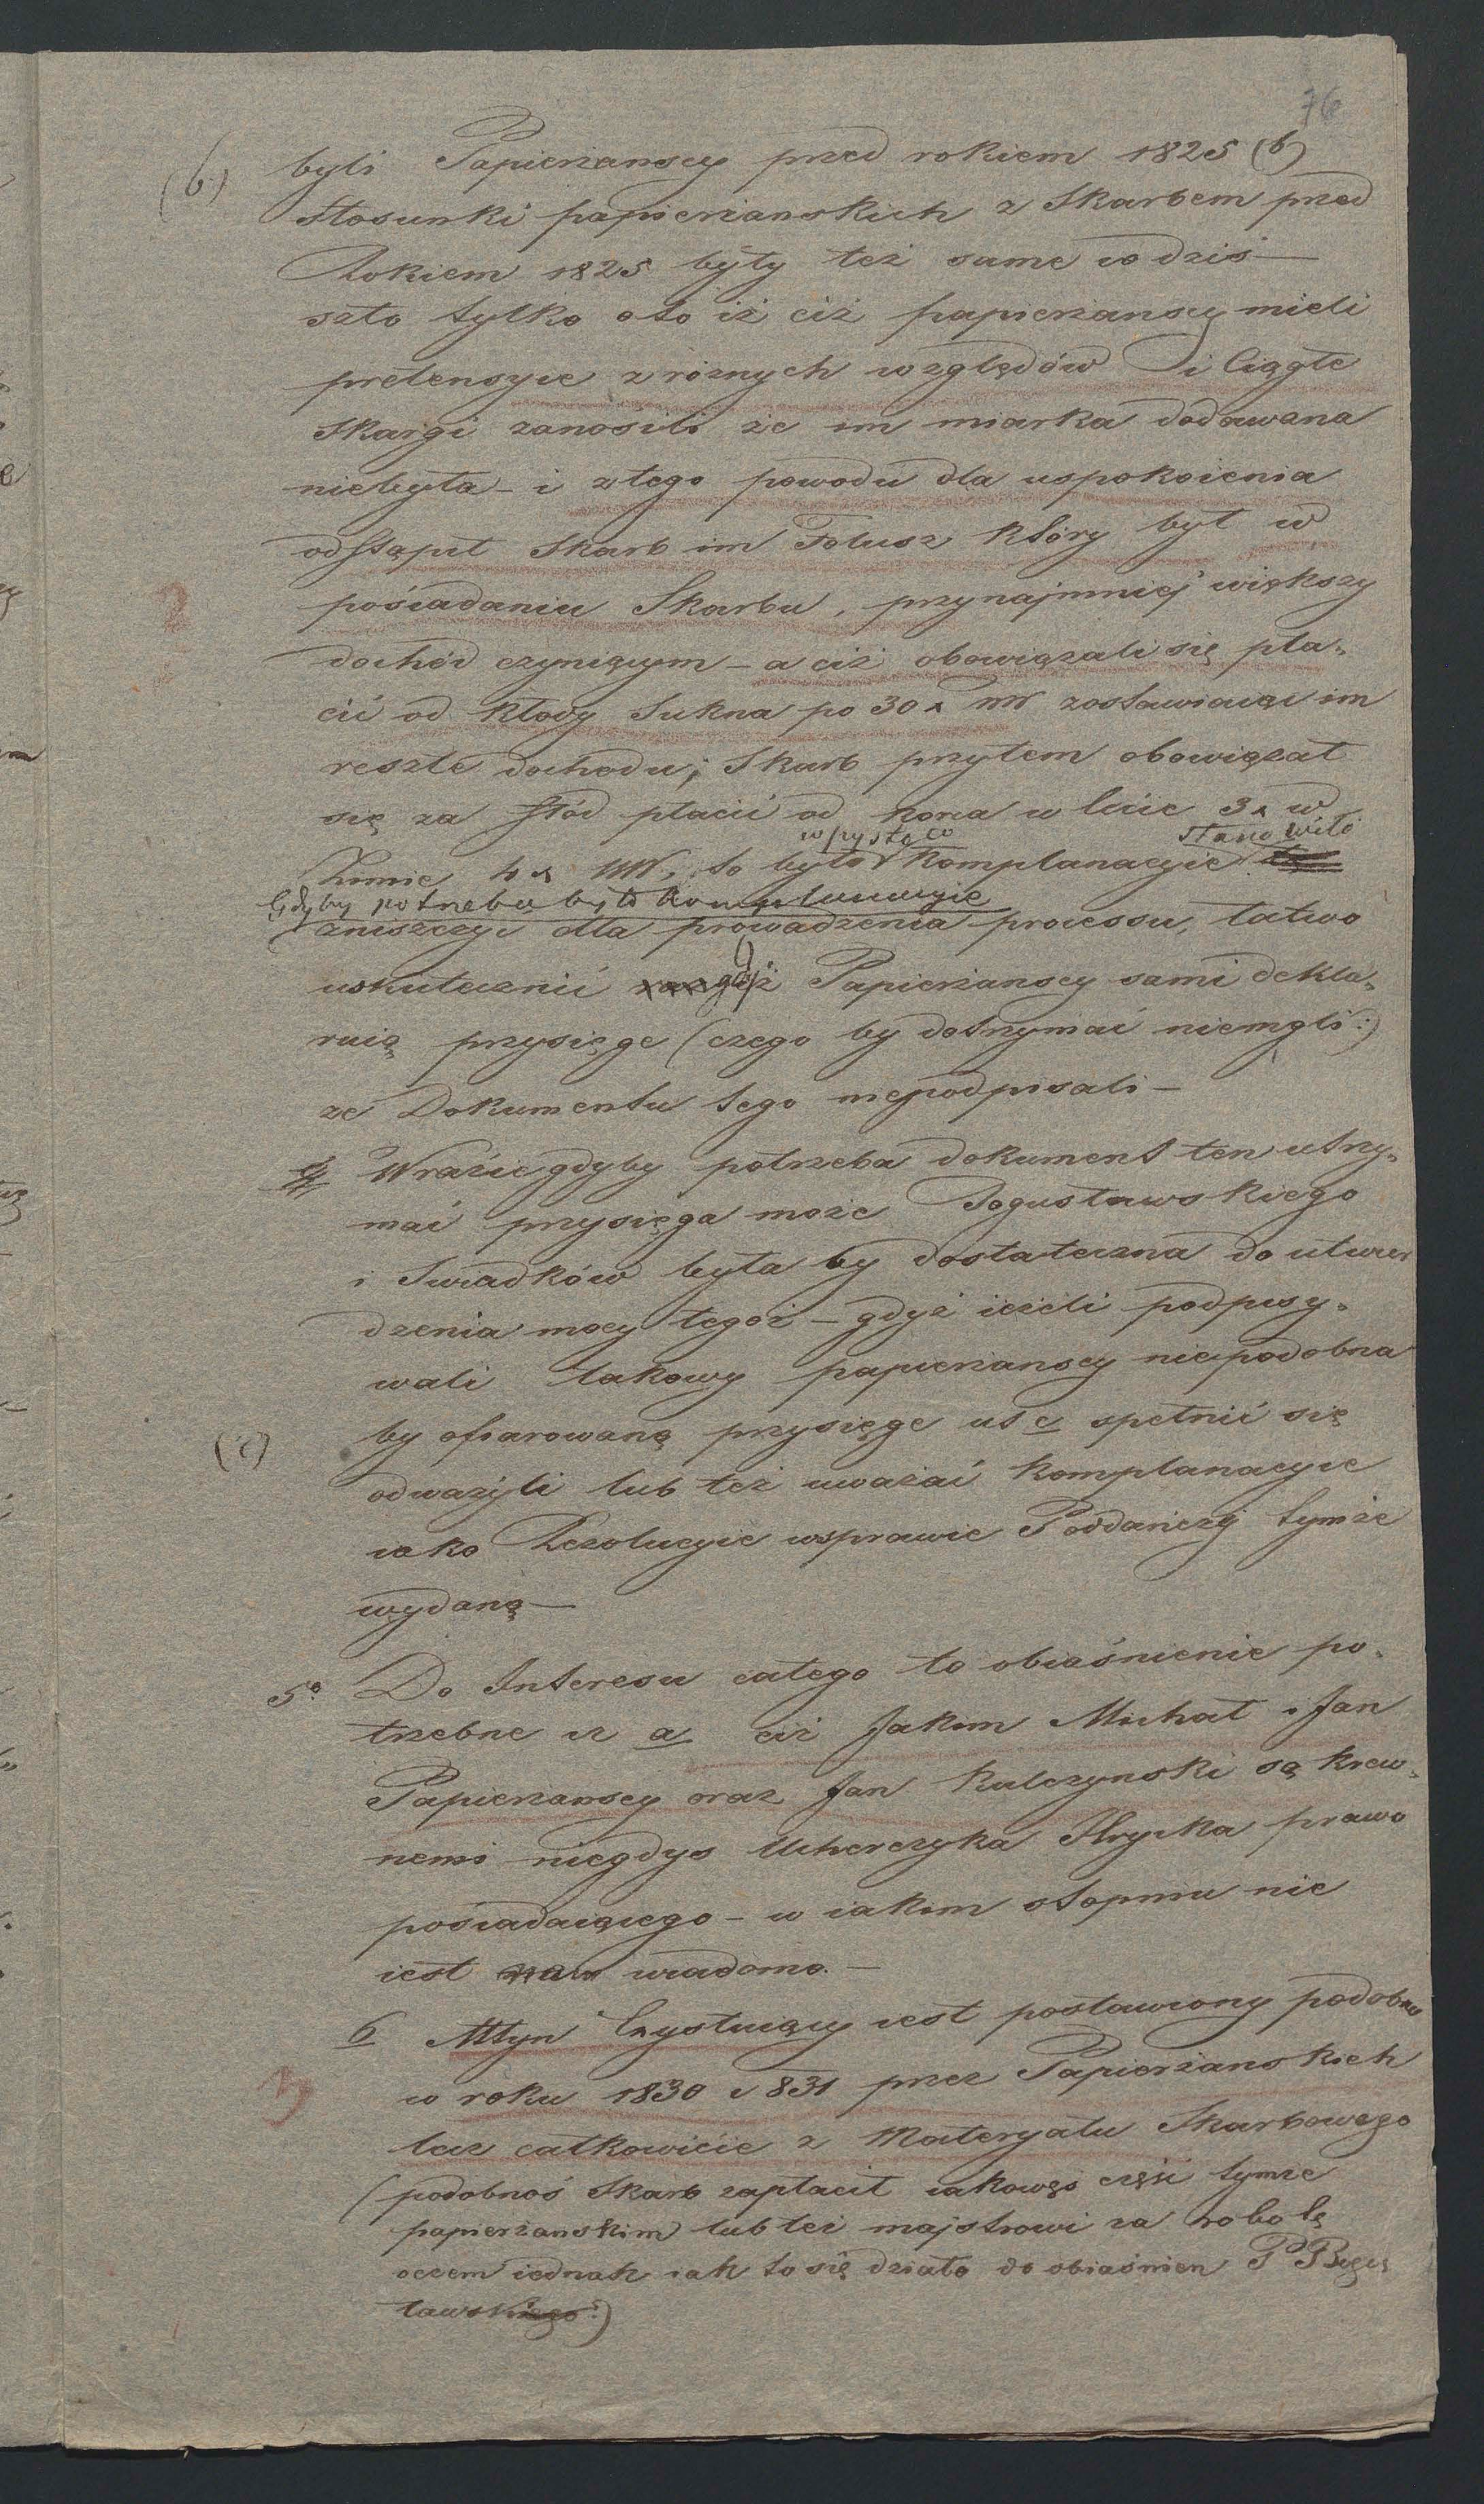 76
(b) byli Papierzanscy przed rokiem 1825 (b)
Stosunki papierzanskich z Skarbem przed
Rokiem 1825 były też same co dziś —
szło tylko oto iż ciż papierzanscy mieli
pretensyie z róznych względów i Ciągłe
Skargi zanosili że im miarka dodawana
niebyła – i ztego powodu dla uspokoienia
odstąpił Skarb im Folusz który był w
pośiadaniu Skarbu, przynajmniej większy
dochód czyniącym – a ciż obowiązali się pła-
cić od kłody Sukna po 30 x MW zostawiaiąc im
reszte dochodu; Skarb przytem obowiązał
się za stód płacić od kona w lecie 3 x w
Zimie 4 x MW, to było wszystko co Komplanacyie stanowiło
Gdyby potrzeba było Komplanacyie
zniszczyć dla prowadzenia processu, łatwo
uskutecznić gdyż Papierzanscy sami dekla-
ruią przysięge (czego by dotrzymać niemgli:)
ze Dokumentu tego niepodpisali –
4 Wrazie gdyby potrzeba dokument ten utrzy-
mać przysięga może Bogusławskiego
i Swiadków była by dostateczna do utwier
dzenia mocy tegoż – gdyż ieżeli podpisy-
wali takowy papierzanscy niepodobna
(c) by ofiarowaną przysięge ut c spełnić się
odważyli lub też uważać Komplanacyie
iako Rezolucyie wsprawie Poddańczej tymże
wydaną —
5º Do Interesu całego to obiaśnienie po-
trzebne iż a ciż Jakim Michał i Jan
Papierzanscy oraz Jan Kulczynski są krew-
nemi niegdys Ucherczyka Hryćka prawo
pośiadaiącego – w iakim stopniu nie
iest wiadomo. —
6 Młyn Exystuiący iest postawiony podobno
w roku 1830 i 831 przez Papierzanskich
lecz całkowicie z Materyału Skarbowego
(podobnoś Skarb zapłacił iakowąś część tymże
papierzanskim lub też majstrowi za robotę
oczem iednak iak to się działo do obiaśnien P Bogus
ławskiego:)